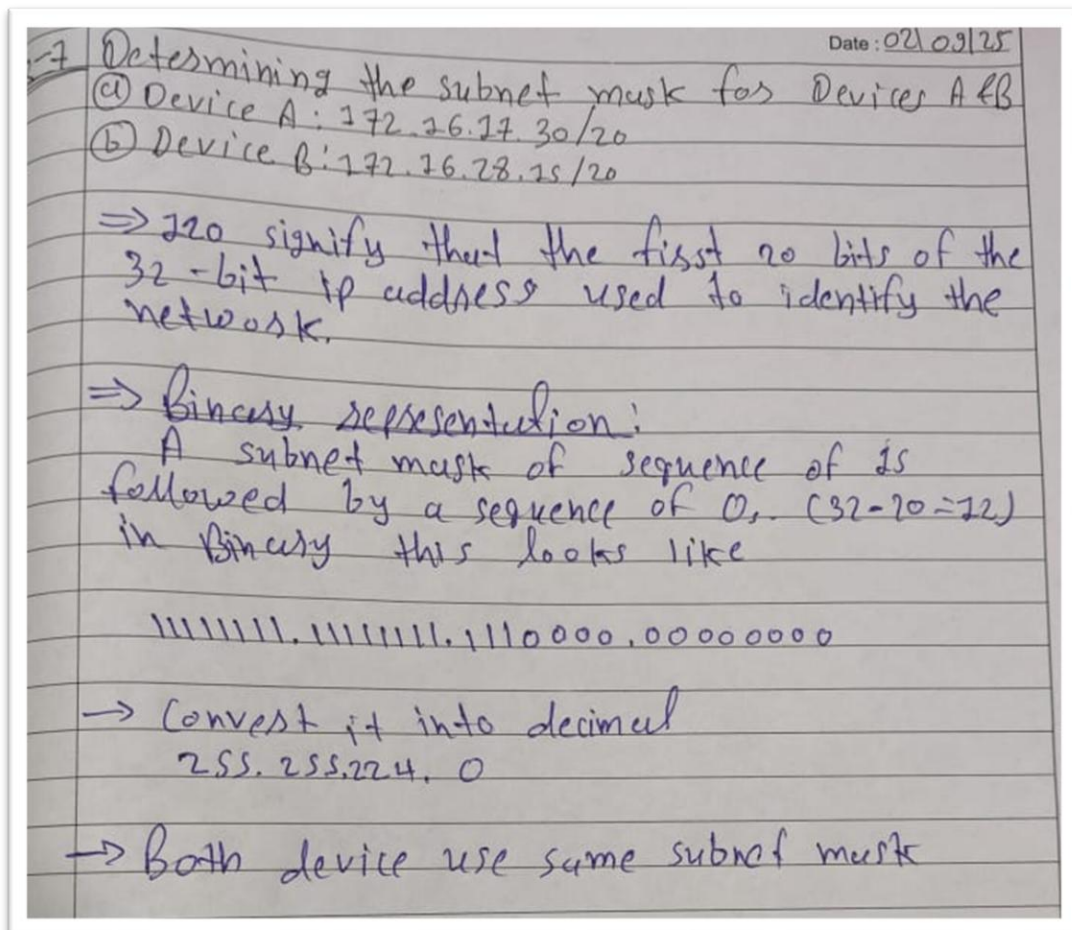 Date : 02/09/25
-7 Determining the subnet mask for Devices A &B
(a) Device A : 172.16.17.30/20
(b) Device B : 172.16.28.15/20
=> 120 signify that the first 20 bits of the
32-bit ip address used to identify the
network.
=> Binary representation :
A subnet mask of sequence of 1s
followed by a sequence of 0s. (32-20=12)
in Binary this looks like
11111111.11111111.1110000.00000000
-> Convert it into decimal
255.255.224.0
-> Both device use same subnet mask